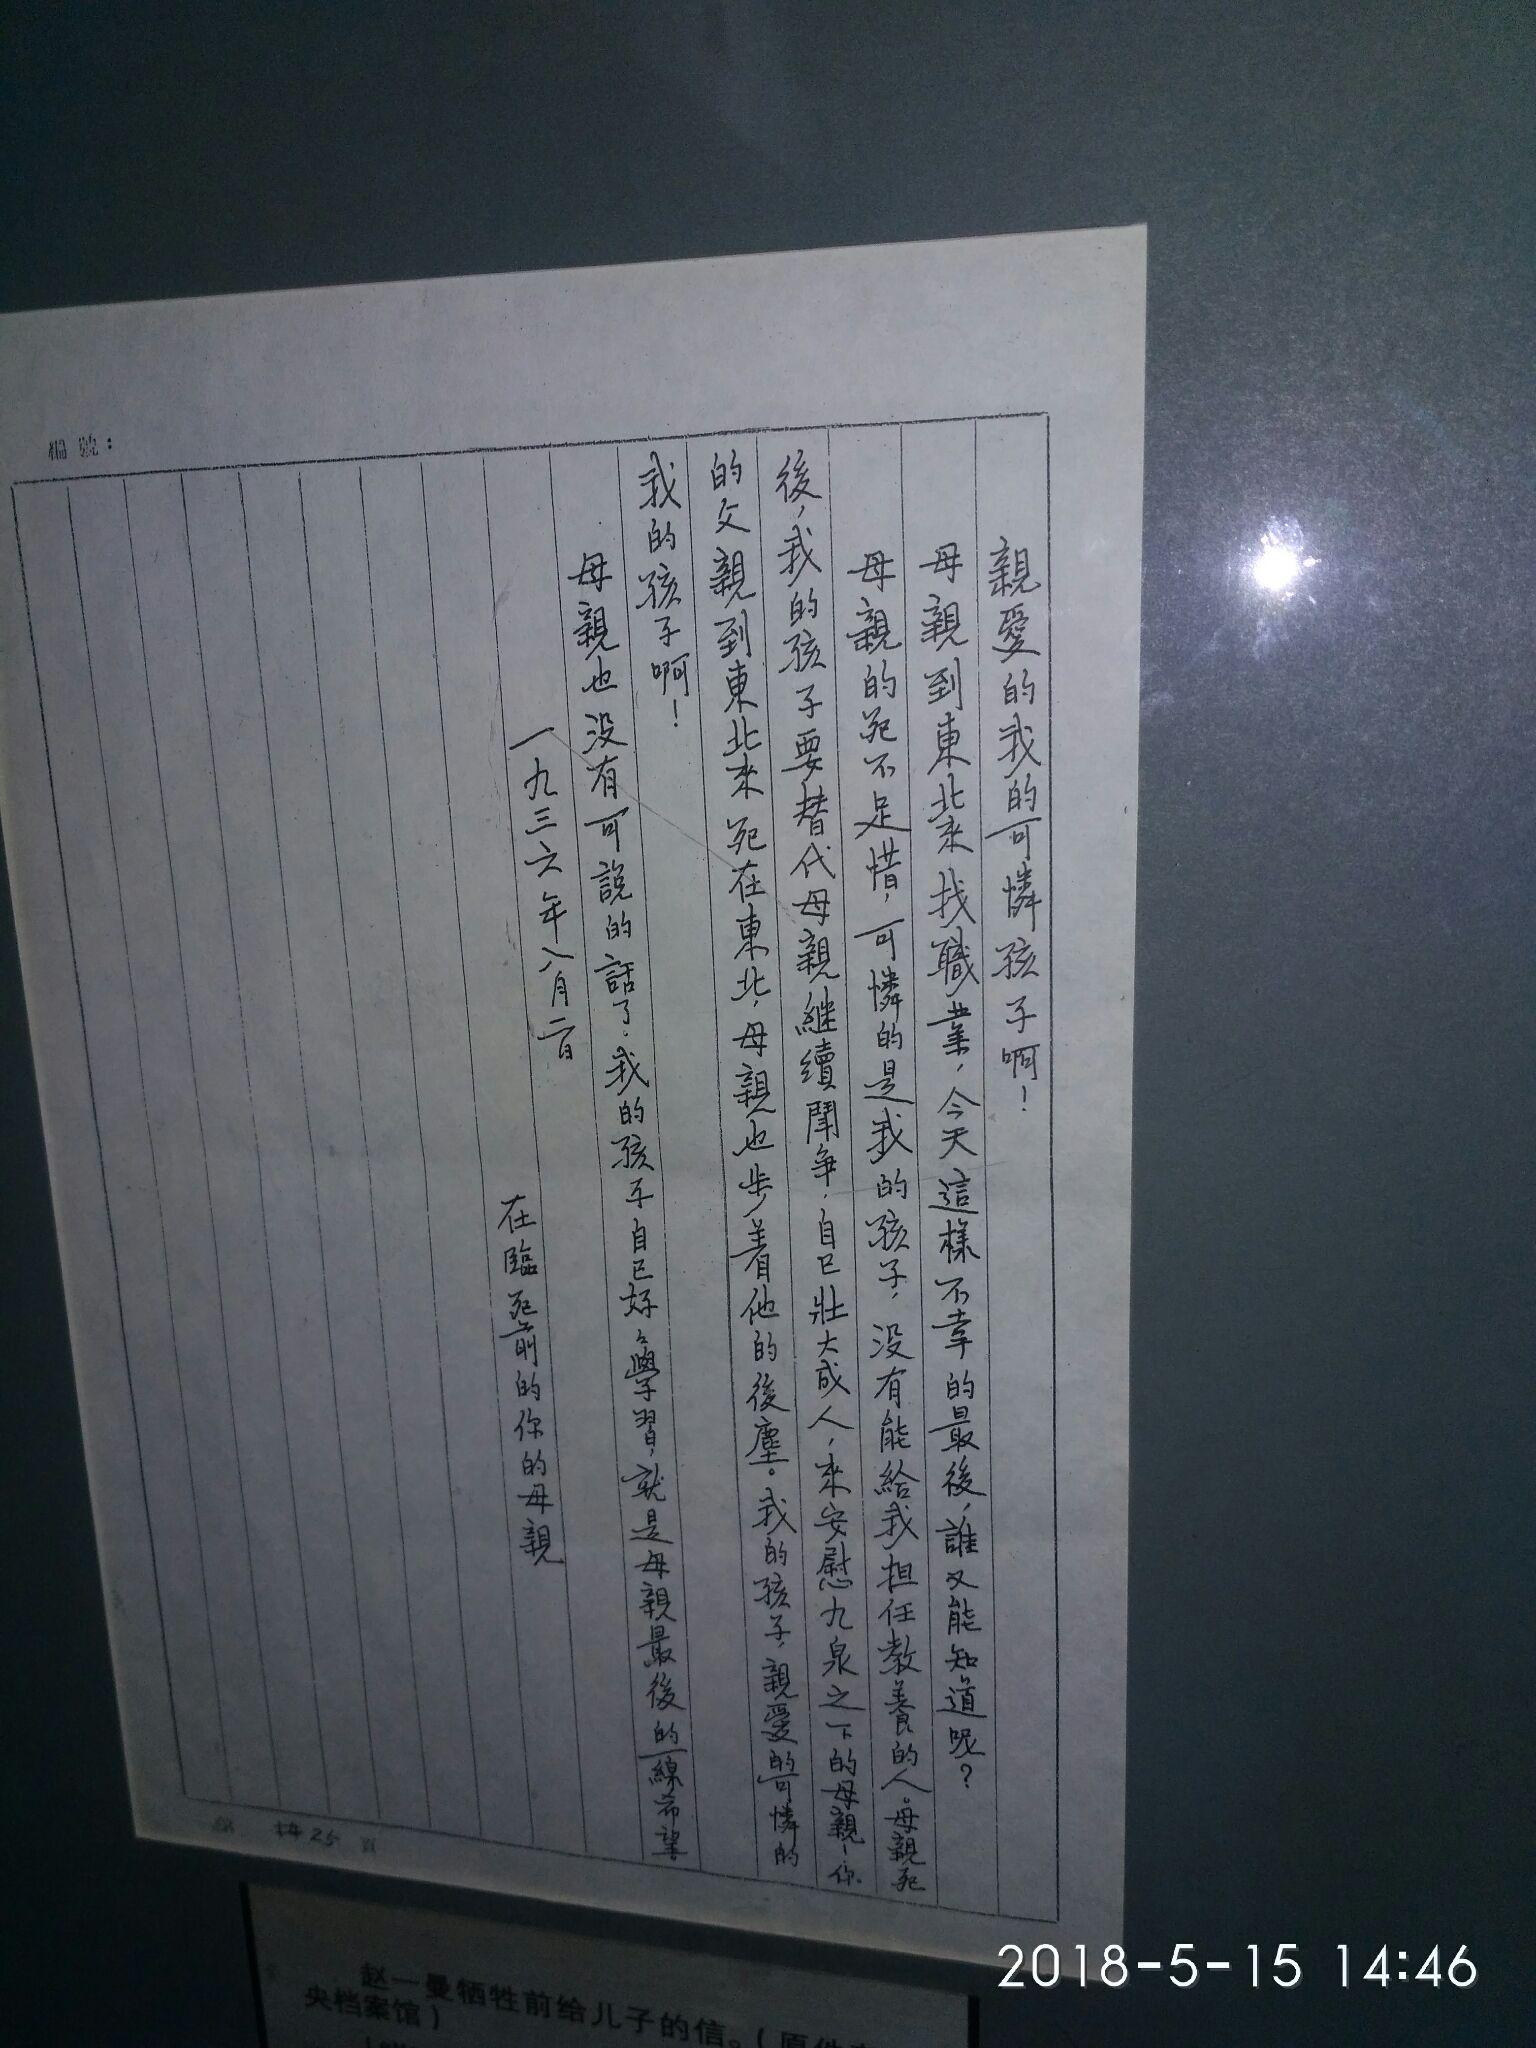 親愛的我的可憐孩子啊！
母親到東北來找職業，今天這樣不幸的最後，誰又能知道呢？
母親的死不足惜，可憐的是我的孩子，没有能給我担任教養的人。母親死
後，我的孩子要替代母親継續鬪争，自己壯大成人，來安慰九泉之下的母親！你
的父親到東北來死在東北，母親也步着他的後塵。我的孩子，親愛的可憐的
我的孩子啊！
母親也没有可説的話了，我的孩子自己好々學習，就是母親最後的一線希望。
一九三六年八月二日
在臨死前的你的母親
共25頁
赵一曼牺牲前给儿子的信。（原件
央档案馆）
2018-5-15 14:46